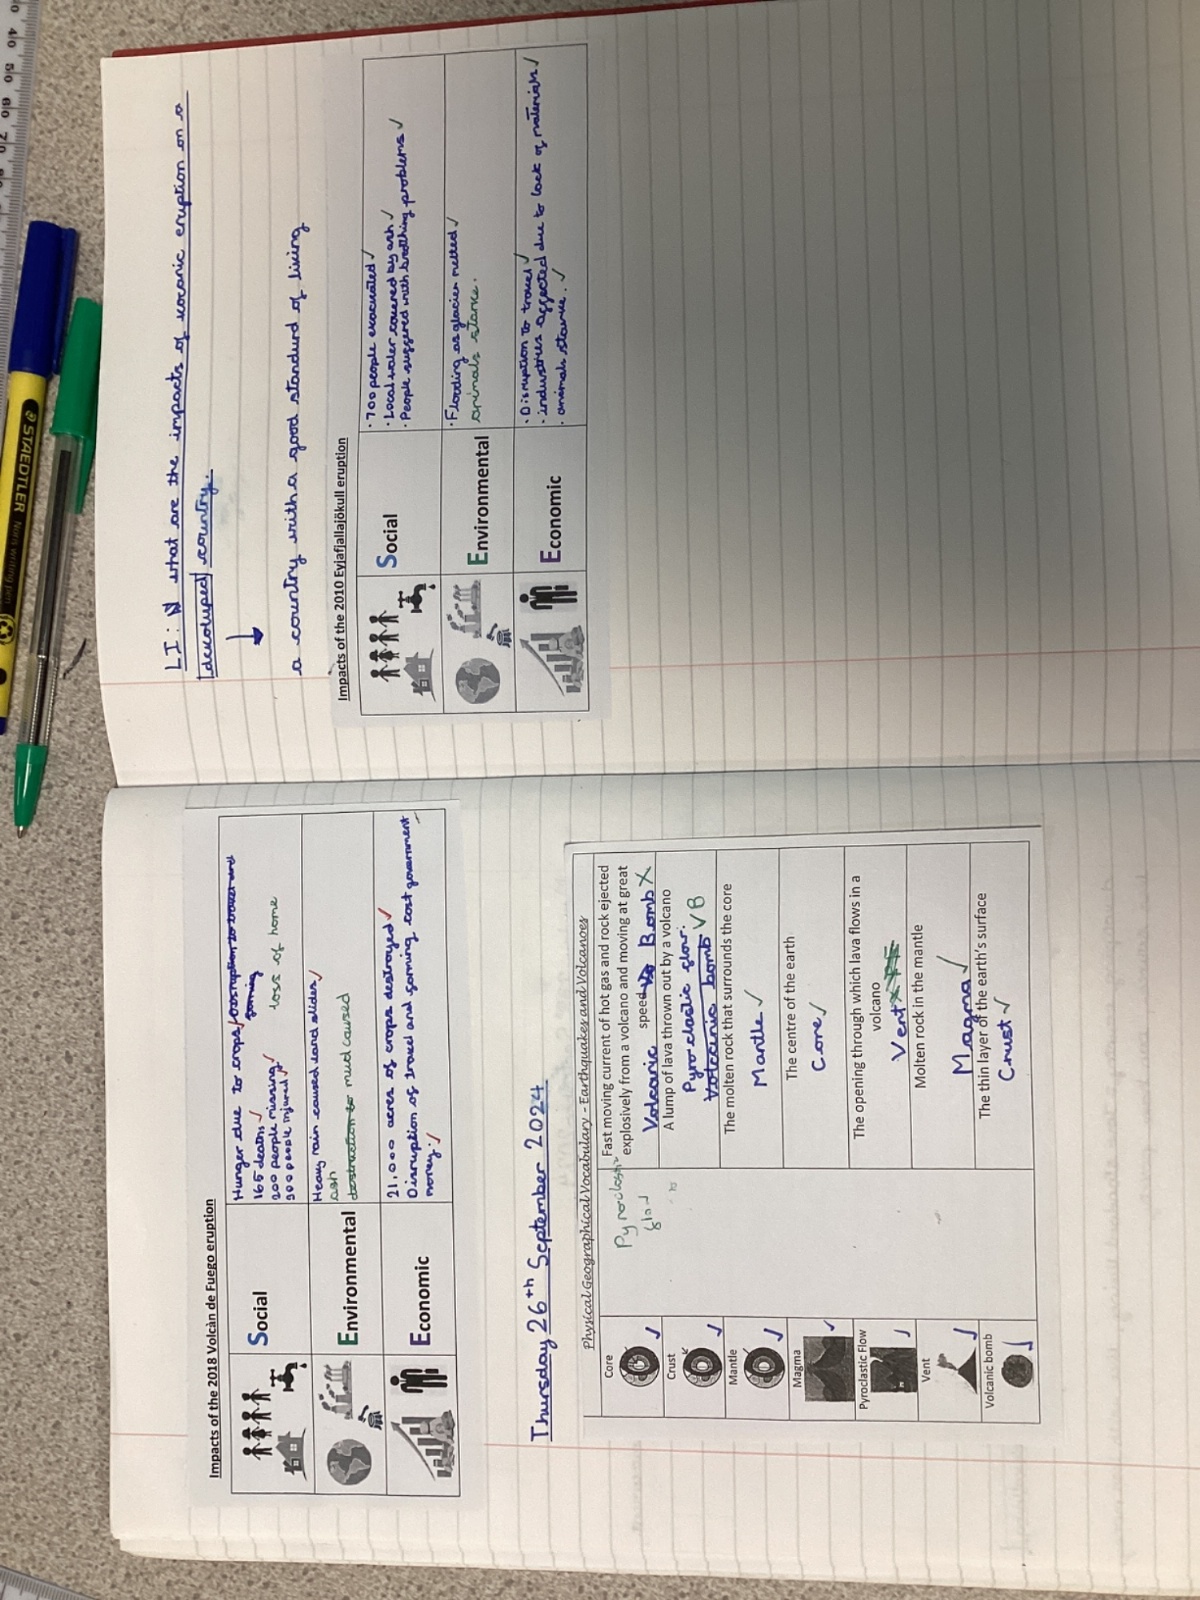 Impacts of the 2018 Volcán de Fuego eruption
Social
Hunger due to crops/ disruption to travel and
farming
165 deaths
200 people missing
300 people injured
loss of home
Environmental
Heavy rain caused land slides
ash
destruction to mud caused
Economic
21,000 acres of crops destroyed
Disruption of travel and farming cost government
money.
Thursday 26th September 2024
Physical Geographical Vocabulary - Earthquakes and Volcanoes
Core
Crust
Mantle
Magma
Pyroclastic Flow
Vent
Volcanic bomb
Pyroclastic
Fast moving current of hot gas and rock ejected
explosively from a volcano and moving at great
speed
Volcanic Bomb
A lump of lava thrown out by a volcano
Pyroclastic flow. VB
Volcanic bomb
The molten rock that surrounds the core
Mantle
The centre of the earth
Core
The opening through which lava flows in a
volcano
Vent
Molten rock in the mantle
Magma
The thin layer of the earth's surface
Crust
LI: what are the impacts of vocanic eruption on a
devoluped country.
a country with a good standurd of living
Impacts of the 2010 Eyjafjallajökull eruption
Social
· 700 people evacuated
· Local water covered by ash
· People suffered with brething problems
Environmental
· Flooding as glacier melted
animals starve.
Economic
· Disruption to travel
· industries affected due to lack of materials
· animals starve.
STAEDTLER